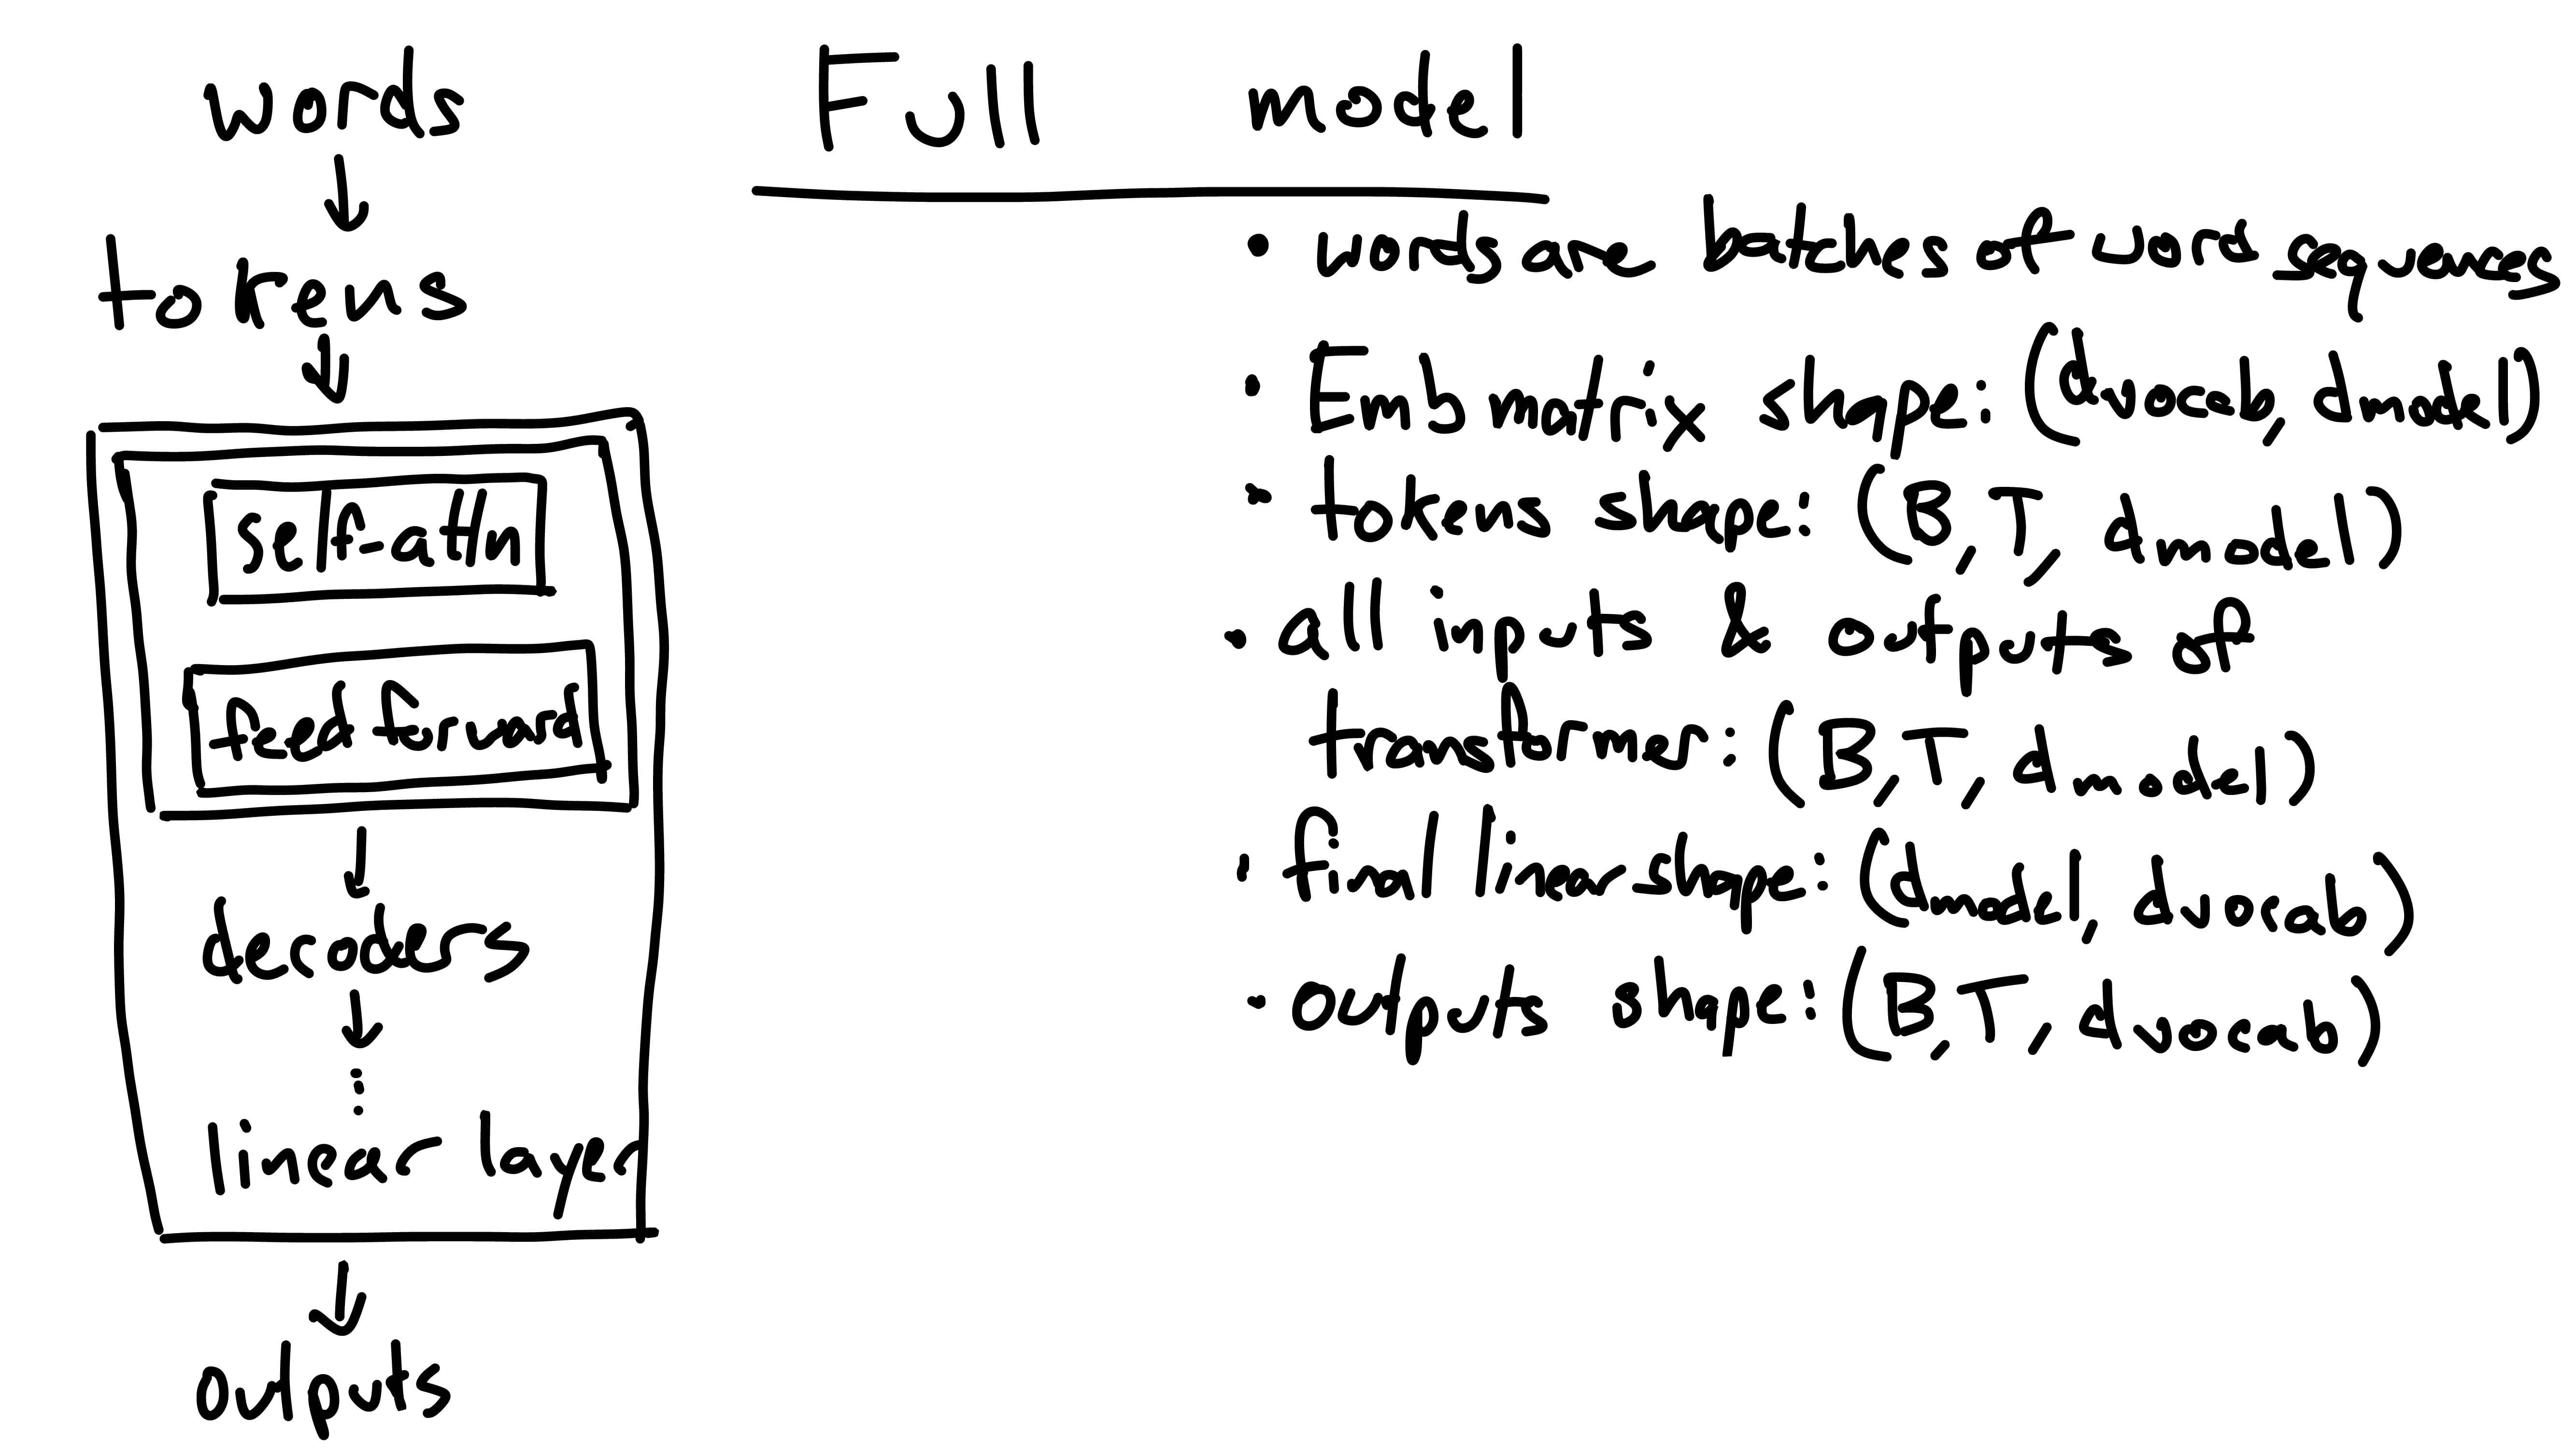 Full model
words
tokens
self-attn
feed forward
decoders
linear layer
outputs
• words are batches of word sequences
• Emb matrix shape: (dvocab, dmodel)
• tokens shape: (B, T, dmodel)
• all inputs & outputs of
transformer: (B, T, dmodel)
• final linear shape: (dmodel, dvocab)
• outputs shape: (B, T, dvocab)